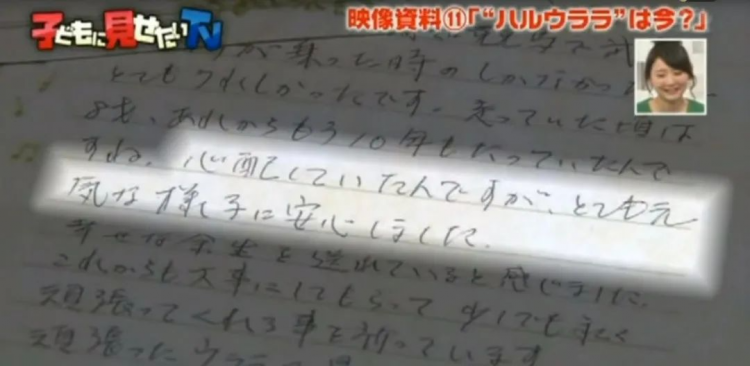 子どもに見せたいTV
映像資料⑪「“ハルウララ”は今?」
が乗った時の
とてもうれしかったです。走っていた頃は
あれからもう10年もたっていたんで
すね。心配していたんですが、とても元
気な様子に安心しました。
幸せな余生を送れていると感じました。
これからも大事にしてもらって少しでも永く
頑張ってくれる事を祈っています
頑張ったウララ